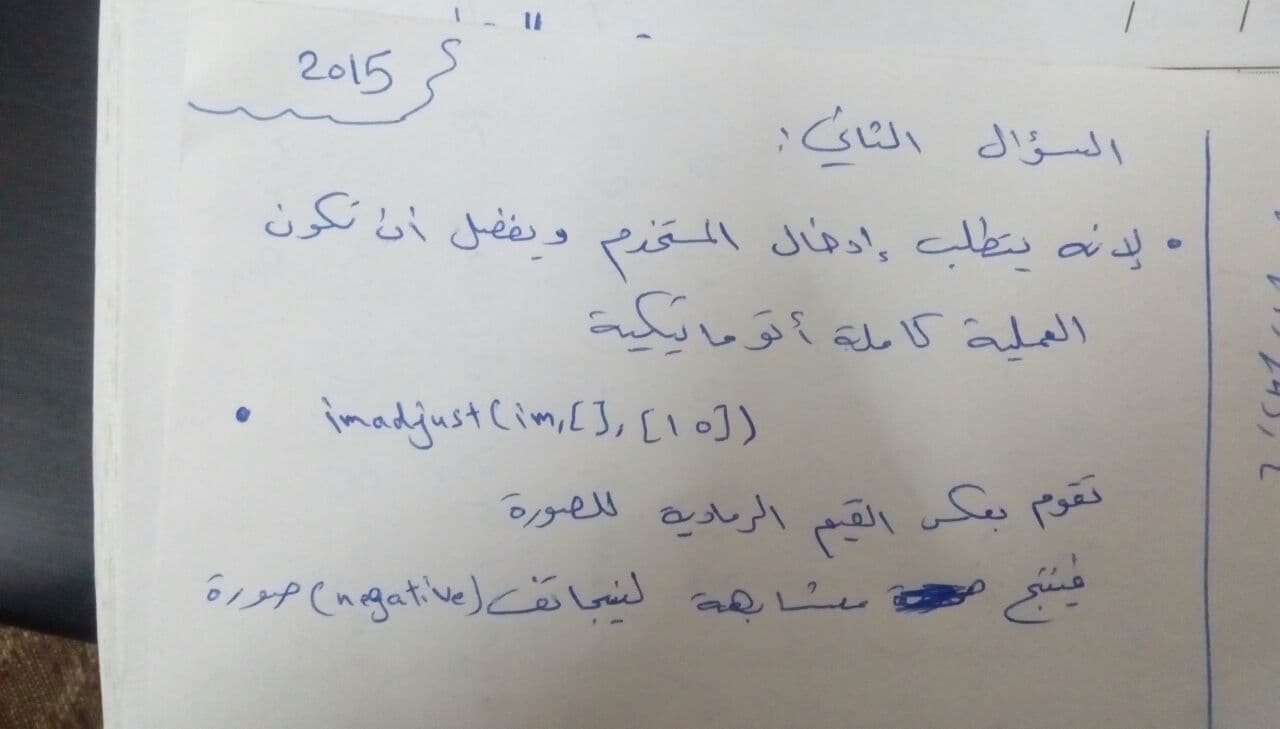 2015
السؤال الثاني:
• لإنه يتطلب إدخال المستخدم ويفضل أن تكون
العملية كاملة أتوماتيكية
• imadjust(im,[],[1 0])
تقوم بعكس القيم الرمادية للصورة
فينتج مشابهة لنيجاتف (negative) صورة